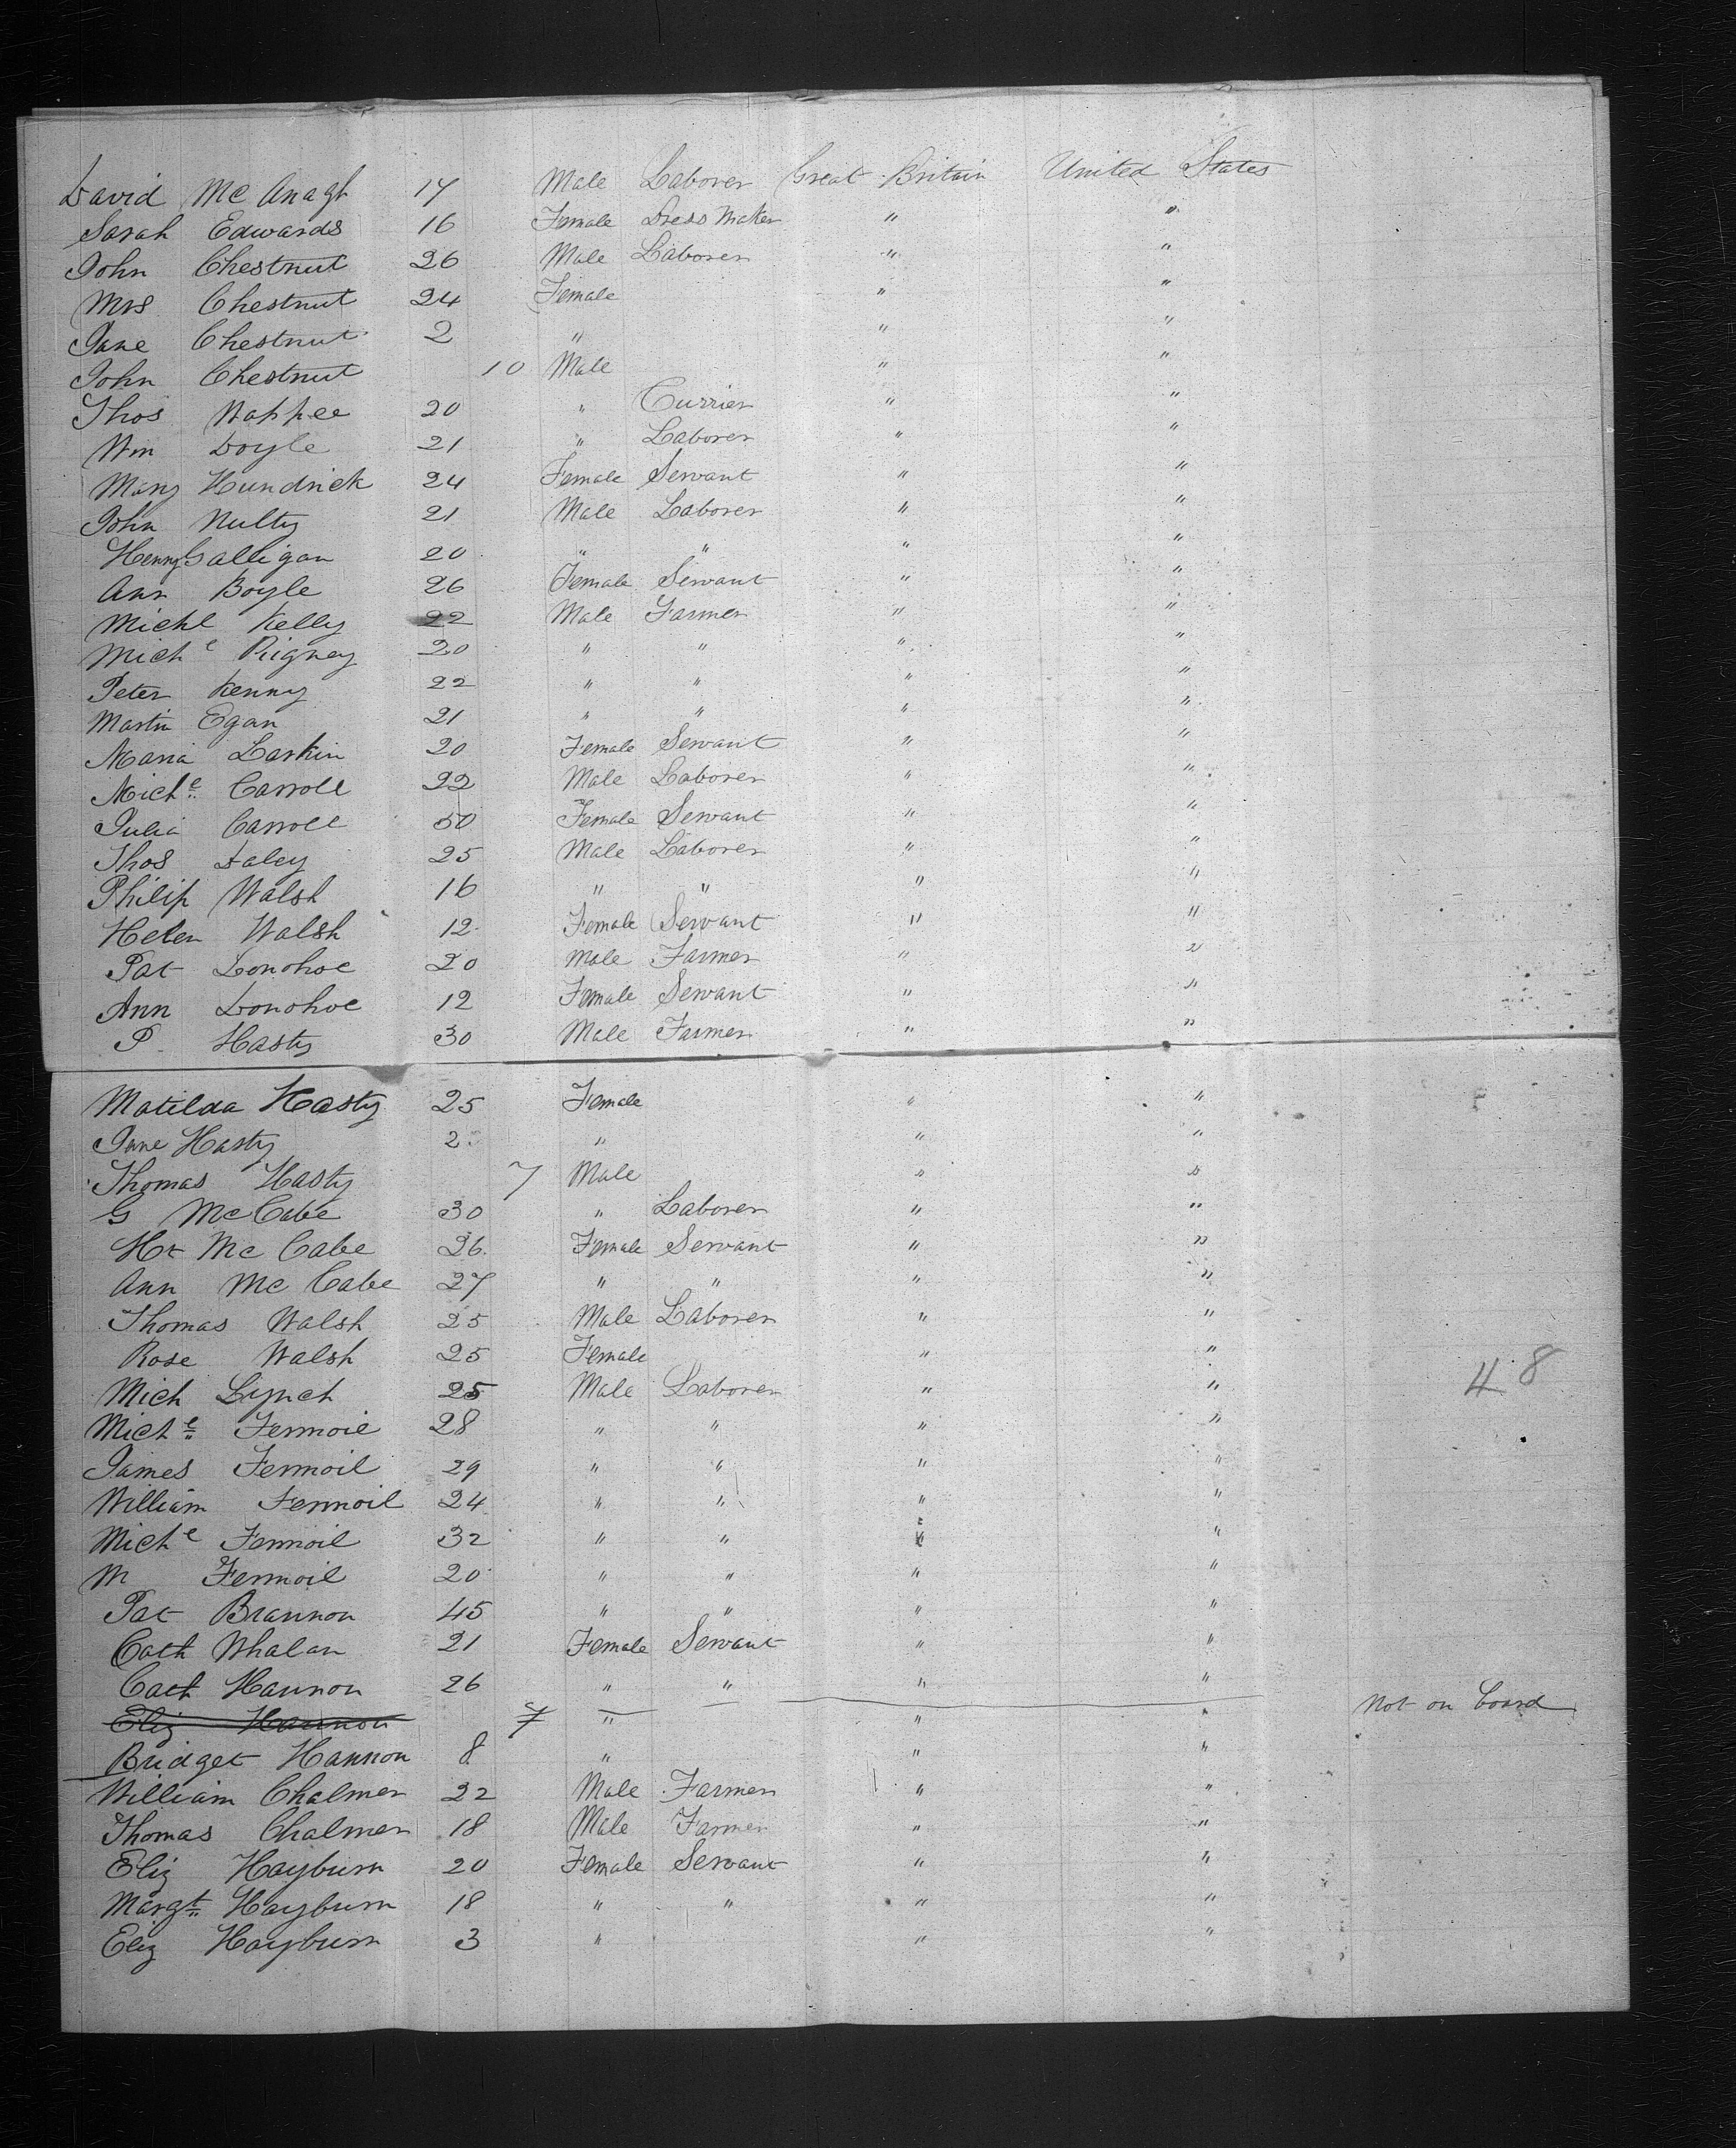 David Mc Anagh 17 Male Laborer Great Britain United States
Sarah Edwards 16 Female Dress Maker " "
John Chestnut 26 Male Laborer " "
Mrs Chestnut 24 Female " "
Jane Chestnut 2 " " "
John Chestnut 10 Male " "
Thos 20 " Currier " "
Wm Doyle 21 " Laborer " "
Mary Hundrick 24 Female Servant " "
John Nulty 21 Male Laborer " "
Henry Galligan 20 " " " "
Ann Boyle 26 Female Servant " "
Michl Kelly 22 Male Farmer " "
Michl Rigney 20 " " " "
Peter Kenny 22 " " " "
Martin Egan 21 " " " "
Maria Larkin 20 Female Servant " "
Michl Carroll 22 Male Laborer " "
Julia Carroll 50 Female Servant " "
Thos Daley 25 Male Laborer " "
Philip Walsh 16 " " " "
Helen Walsh 12 Female Servant " "
Pat Donohoe 20 Male Farmer " "
Ann Donohoe 12 Female Servant " "
P Hasty 30 Male Farmer " "
Matilda Hasty 25 Female " "
Jane Hasty 2 " " "
Thomas Hasty 7 Male " "
G McCabe 30 " Laborer " "
Ht Mc Cabe 26 Female Servant " "
Ann Mc Cabe 27 " " " "
Thomas Walsh 25 Male Laborer " "
Rose Walsh 25 Female " "
Mich Lynch 25 Male Laborer " " 48
Michl Fermoil 28 " " " "
James Fermoil 29 " " " "
William Fermoil 24 " " " "
Michl Fermoil 32 " " " "
M Fermoil 20 " " " "
Pat Brannon 45 " " " "
Cath Whalan 21 Female Servant " "
Cath Hannon 26 " " " "
Eliz Hannon 7 " " " Not on board
Bridget Hannon 8 " " "
William Chalmer 22 Male Farmer " "
Thomas Chalmer 18 Male Farmer " "
Eliz Hayburn 20 Female Servant " "
Margt Hayburn 18 " " " "
Eliz Hayburn 3 " " "